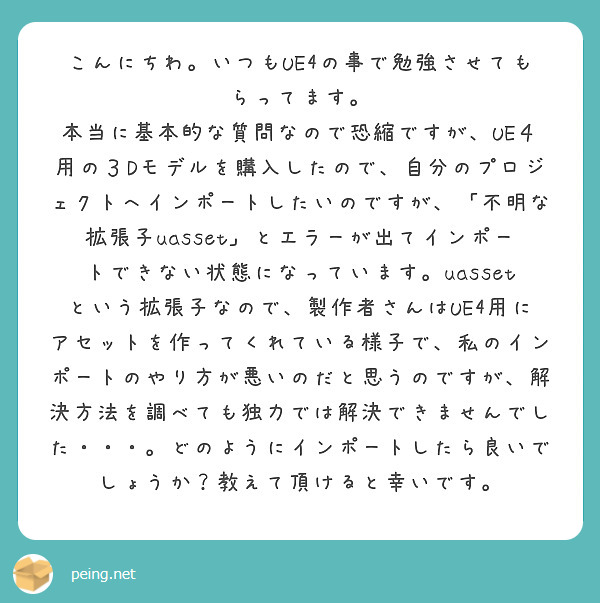 こんにちわ。いつもUE4の事で勉強させても
らってます。
本当に基本的な質問なので恐縮ですが、UE４
用の３Dモデルを購入したので、自分のプロジ
ェクトへインポートしたいのですが、「不明な
拡張子uasset」とエラーが出てインポー
トできない状態になっています。uasset
という拡張子なので、製作者さんはUE4用に
アセットを作ってくれている様子で、私のイン
ポートのやり方が悪いのだと思うのですが、解
決方法を調べても独力では解決できませんでし
た・・・。どのようにインポートしたら良いで
しょうか？教えて頂けると幸いです。
peing.net